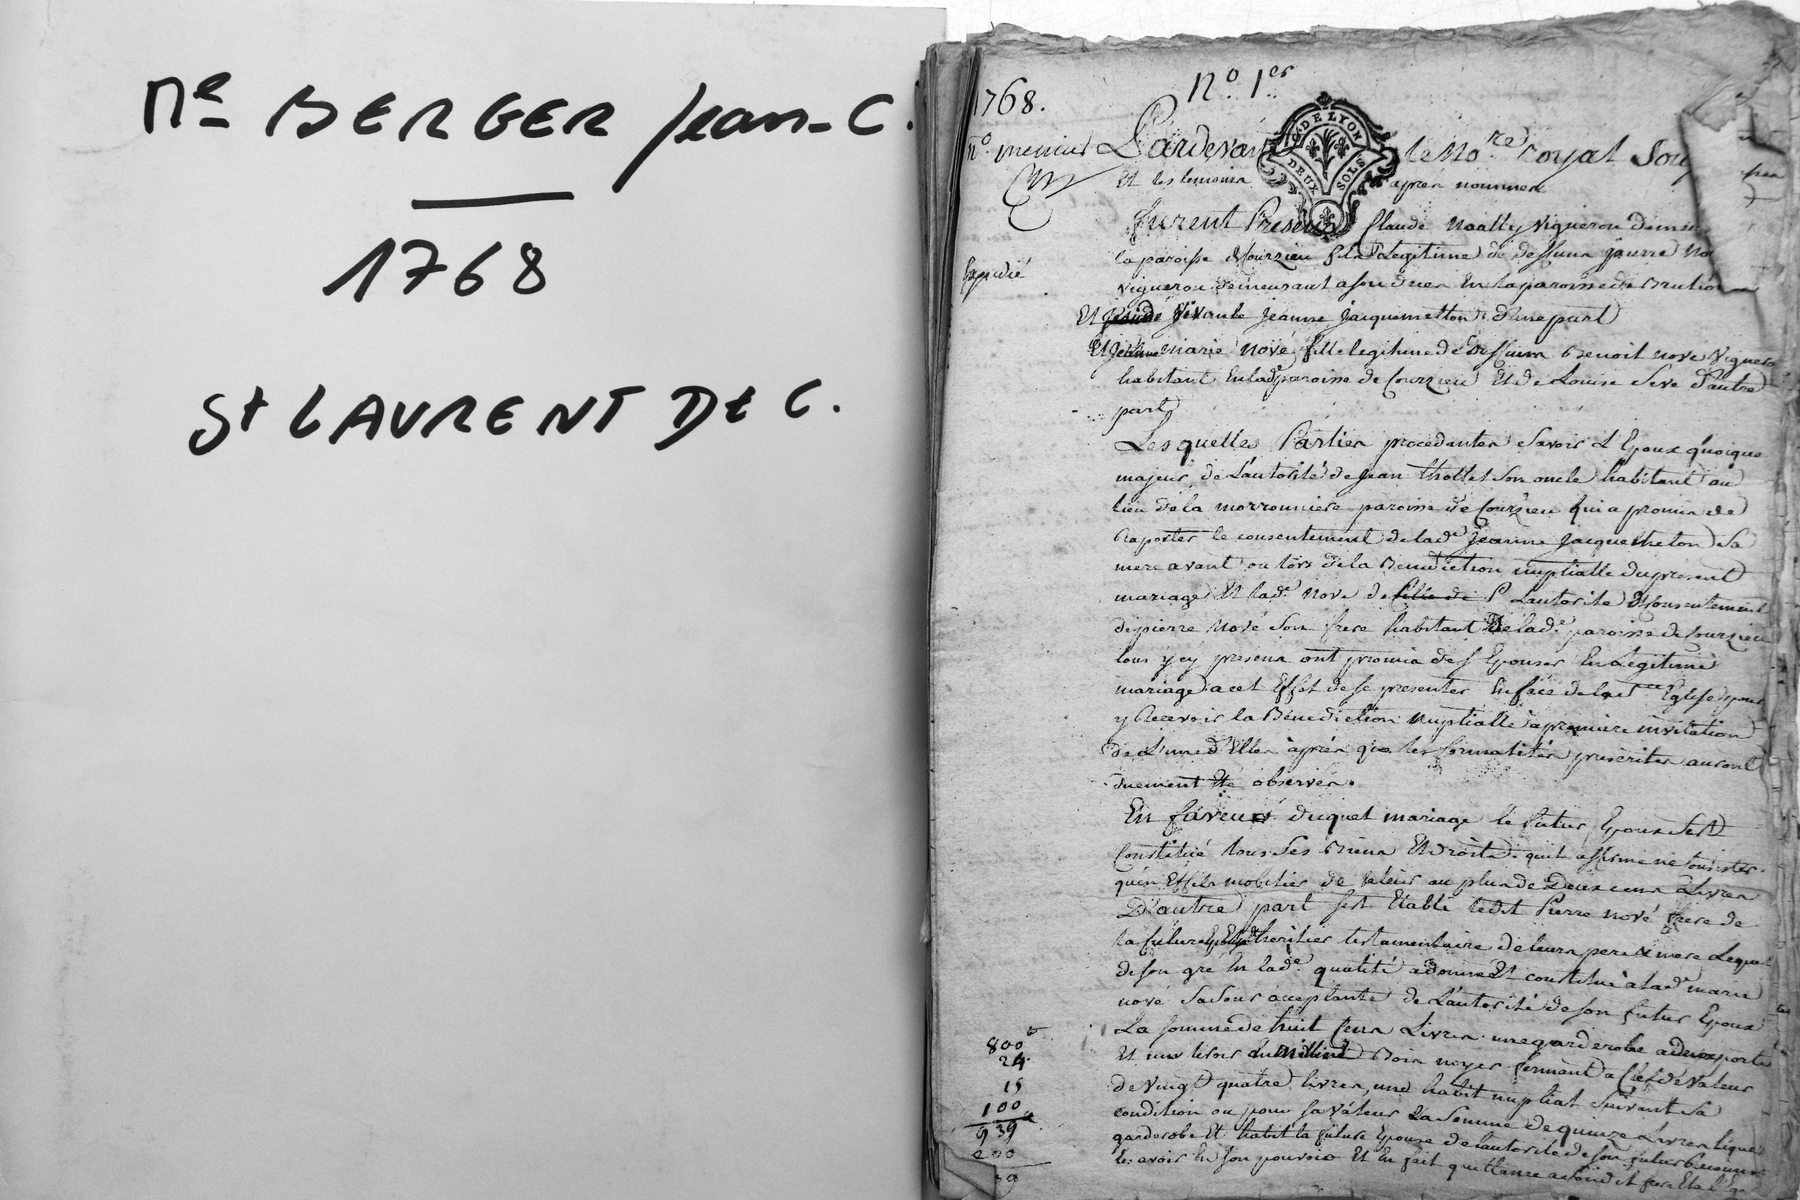 Me BERGER Jean-C.
1768
St LAURENT DE C.
1768.
No. 1er
no. premier
Pardevant le Nore royal Sou
Et les temoins après nommés
G. DE LYON
DEUX SOLS
furent Presens Claude Noally Vigneron demeu
la paroisse de Courzieu fils Legitime de deffunt pierre No
Expedié
Vigneron demeurant a son deces En la paroisse de Brulio
Et vivante Jeanne Jacquemetton d'une part
Et Jeanne marie Nové fille legitime de deffunt Benoit nové Vigneron
habitant En lade paroisse de Courzieu Et de Louise Seve d'autre
part
Lesquelles Parties procedantes Savoir L'Epoux quoique
majeur de L'autorité de Jean Thollet Son oncle habitant au
lieu de la morronniere paroisse de Courzieu qui a promis de
Raporter le consentement de lade Jeanne Jacquemeton Sa
mere avant ou lors de la Benediction nuptialle du present
mariage Et lade Nové de fille de P L'autorité Et Consentement
de pierre Nové Son frere habitant de lade paroisse de Courzieu
tous yey presens ont promis de S'Epouser En Legitime
mariage a cet Effet de Se presenter En face de Eglise pour
y Recevoir la Benediction Nuptialle a premiere invitation
de L'une d'Elles après que les formalités prescrites auront
duement Eté observés.
En faveur duquel mariage le futur Epoux S'est
Constitué tous Ses Biens Et droits qu'il affirme ne Consister
qu'en Effets mobilier de Valeur au plus de Deux cens Livres
D'autre part S'est Etabli ledit Pierre Nové frere de
la future Epouse heritier testamentaire de leurs pere & mere Lequel
de Son gré En lade qualité a donné Et constitué à lade marie
nové Sa Sœur acceptante de L'autorité de Son futur Epoux
La Somme de huit Cens Livres une garderobe a deux portes
Et un tiroir Bois noyer fermant a Clef de Valeur
de Vingt quatre livres, une habit nuptial Suivant Sa
condition ou pour Sa Valeur La Somme de quinze Livres
garderobe Et habit la future Epouse de L'autorité de Son futur
les avoir En Son pouvoir Et En fait quittance
800
24
15
100
939
200
39